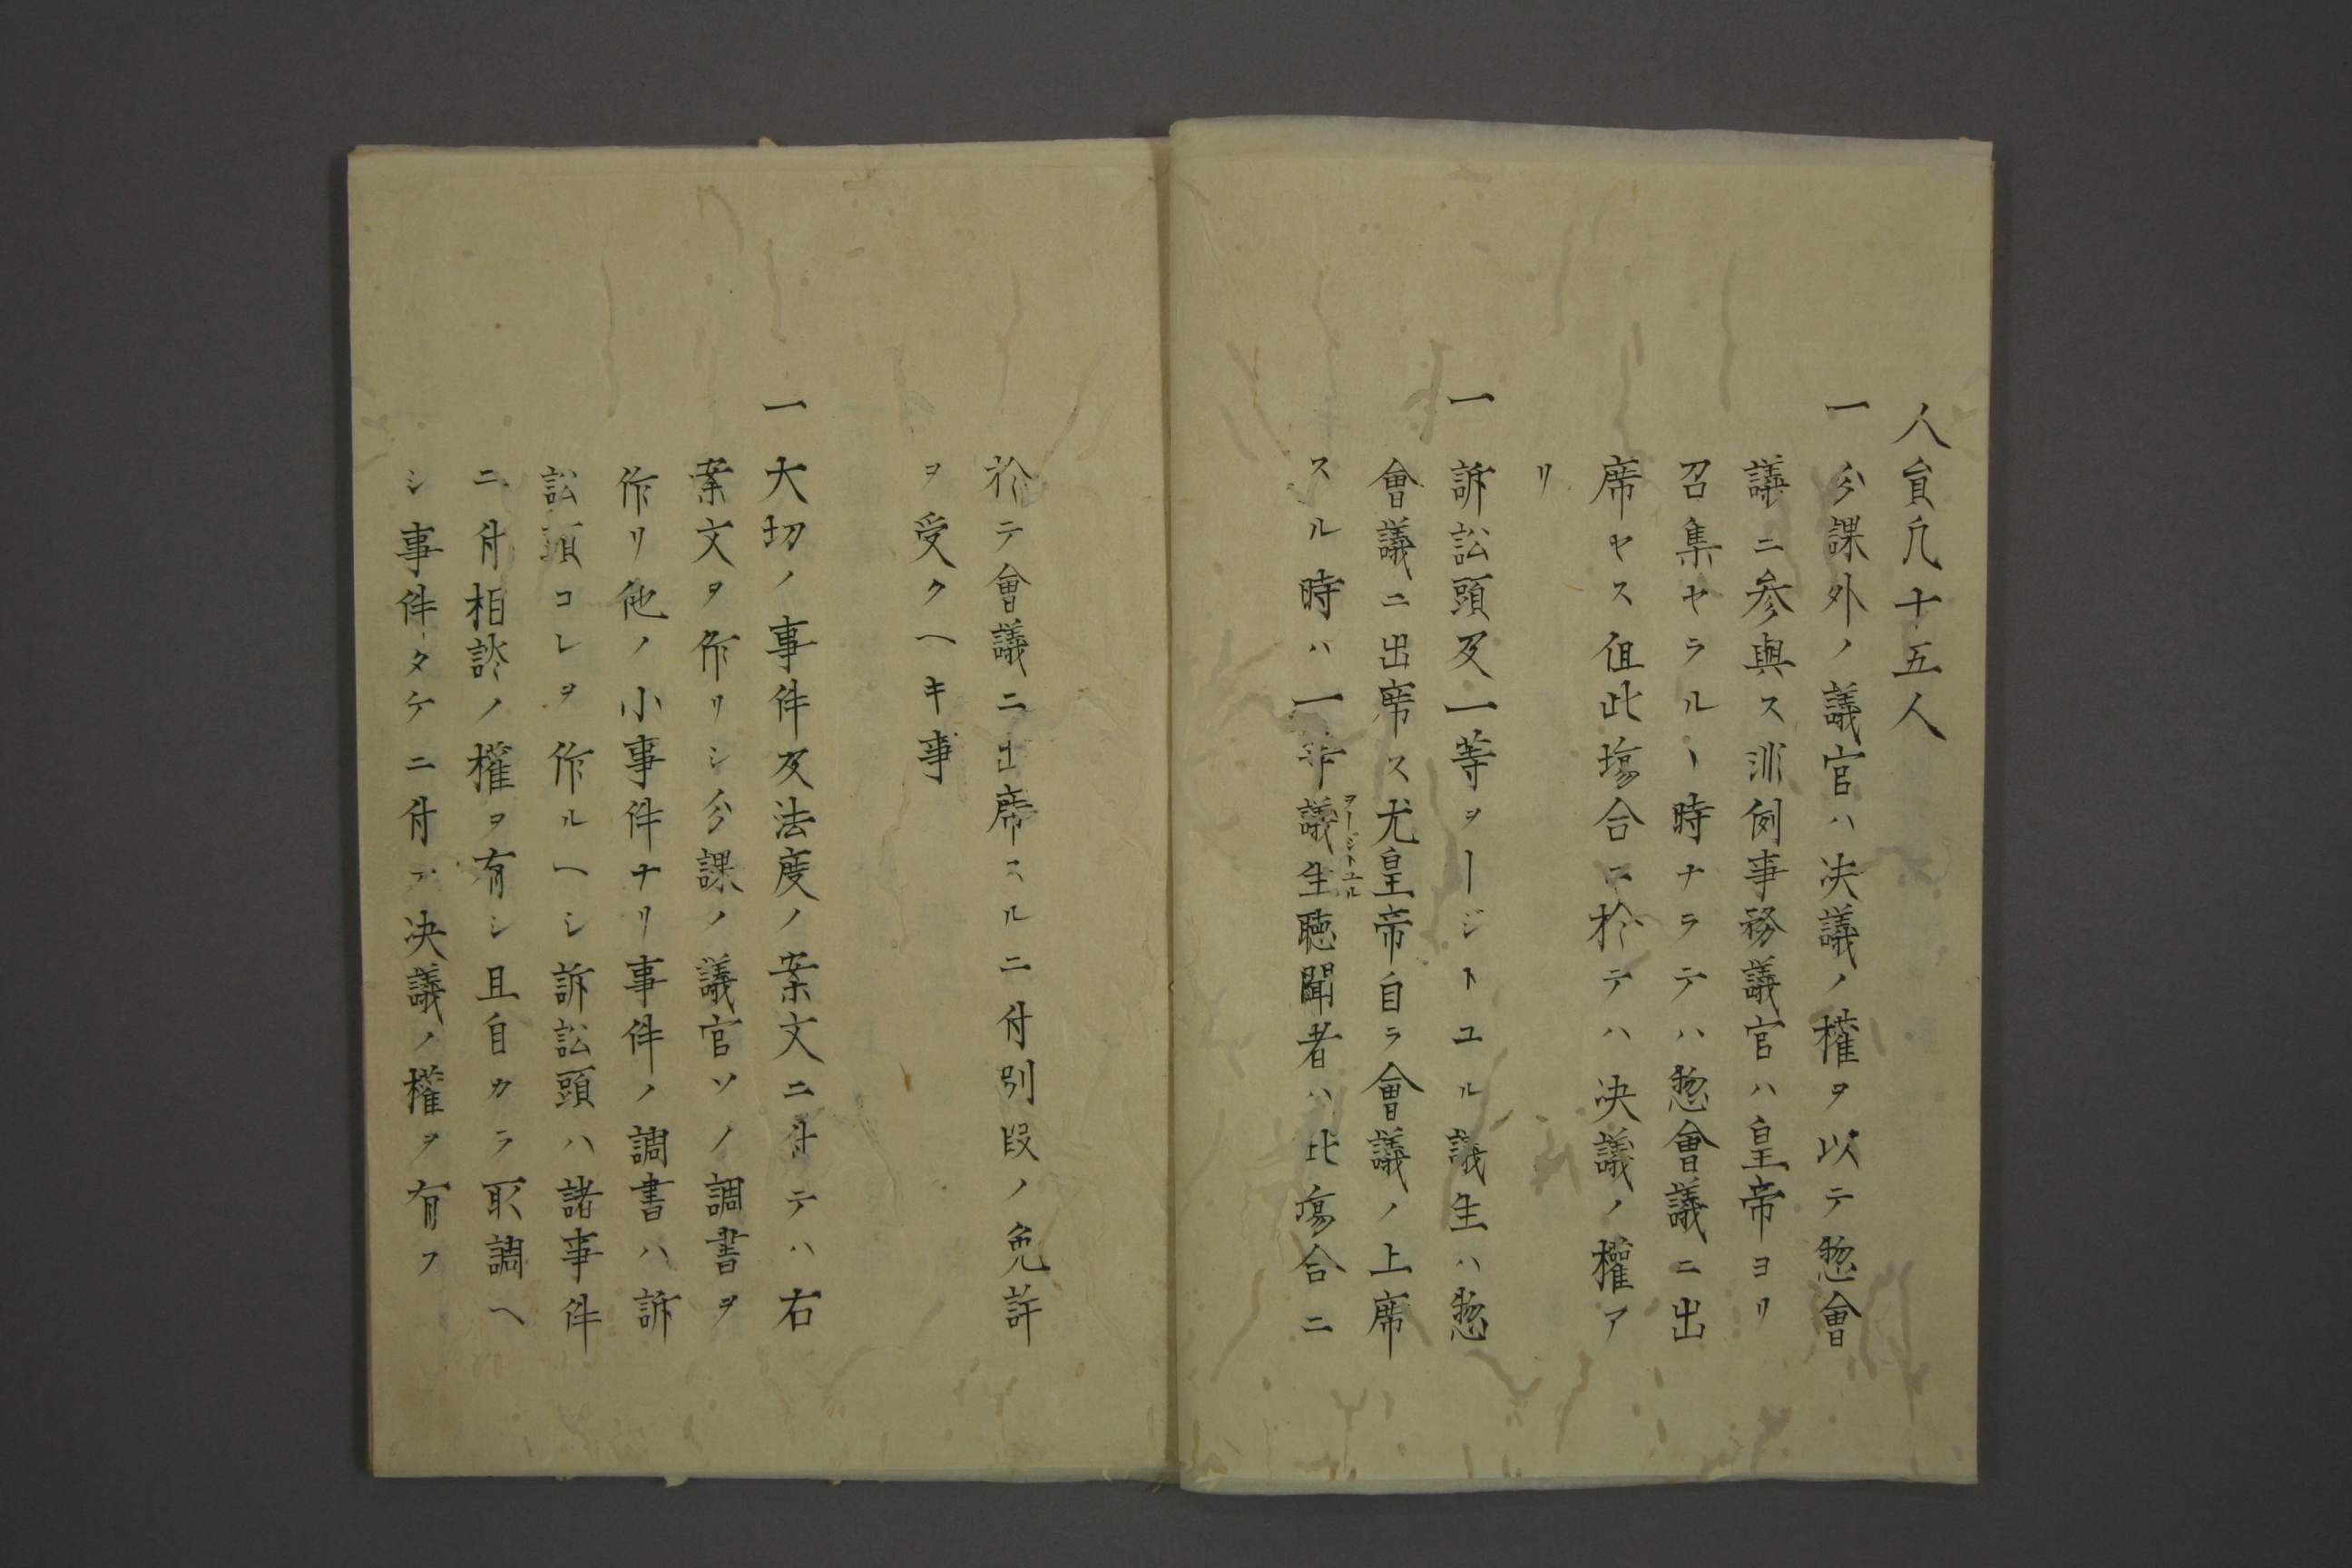 人員凡十五人
一分課外ノ議官ハ决議ノ權ヲ以テ惣會
議ニ参與ス非例事務議官ハ皇帝ヨリ
召集セラルヽ時ナラテハ惣會議ニ出
席セス但此塲合ニ於テハ决議ノ權ア
リ
一訴訟頭及一等ヲージトユル議生ハ惣
會議ニ出席ス尤皇帝自ラ會議ノ上席
スル時ハ一等議生聴聞者ハ此塲合ニ
ヲージトユル
於テ會議ニ出席スルニ付別段ノ免許
ヲ受クヘキ事
一大切ノ事件及法度ノ案文ニ付テハ右
案文ヲ作リシ分課ノ議官ソノ調書ヲ
作リ他ノ小事件ナリ事件ノ調書ハ訴
訟頭コレヲ作ルヘシ訴訟頭ハ諸事件
ニ付相談ノ權ヲ有シ且自カラ取調ヘ
シ事件タケニ付テ决議ノ權ヲ有フ